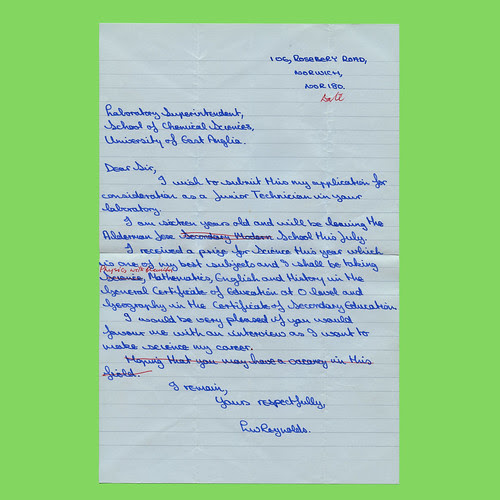 106, ROSEBERY ROAD,
NORWICH,
NOR 180.
Date
Laboratory Superintendent,
School of Chemical Sciences,
University of East Anglia.
Dear Sir,
I wish to submit this my application for
consideration as a Junior Technician in your
laboratory.
I am sixteen years old and will be leaving the
Alderman Jex Secondary Modern School this July.
I received a prize for Science this year which
is one of my best subjects and I shall be taking
Physics with Chemistry
Science, Mathematics, English and History in the
General Certificate of Education at O level and
Geography in the Certificate of Secondary Education
I would be very pleased if you would
favour me with an interview as I want to
make science my career.
Hoping that you may have a vacancy in this
field.
I remain,
Yours respectfully,
Reynolds.